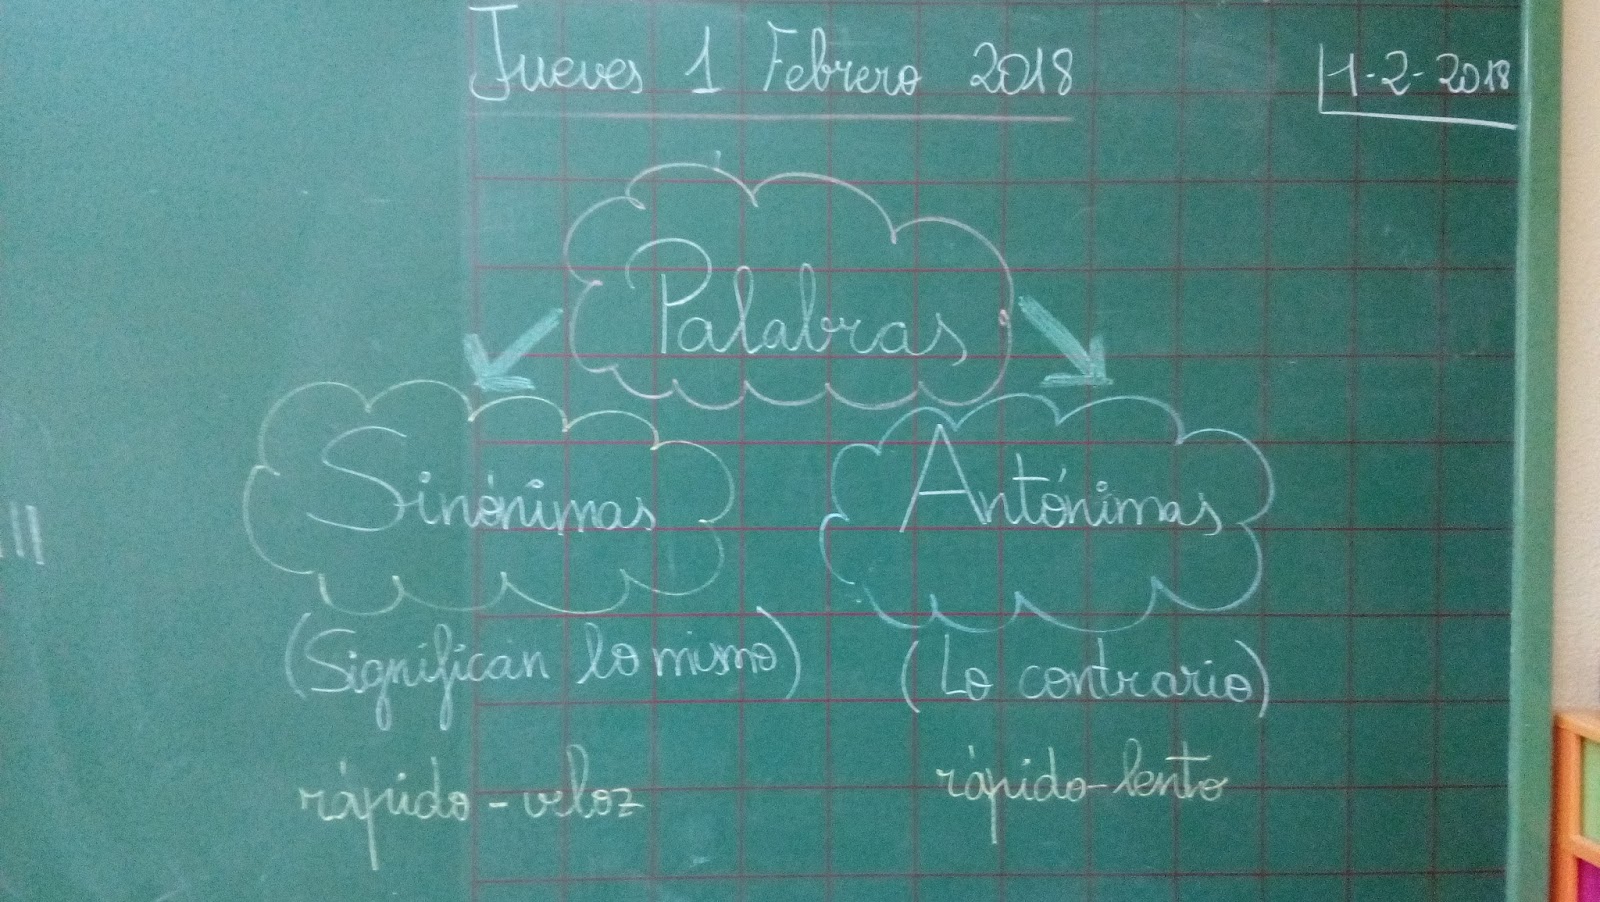 Jueves 1 Febrero 2018
1-2-2018
Palabras
Sinónimas
Antónimas
(Significan lo mismo)
(Lo contrario)
rápido-veloz
rápido-lento